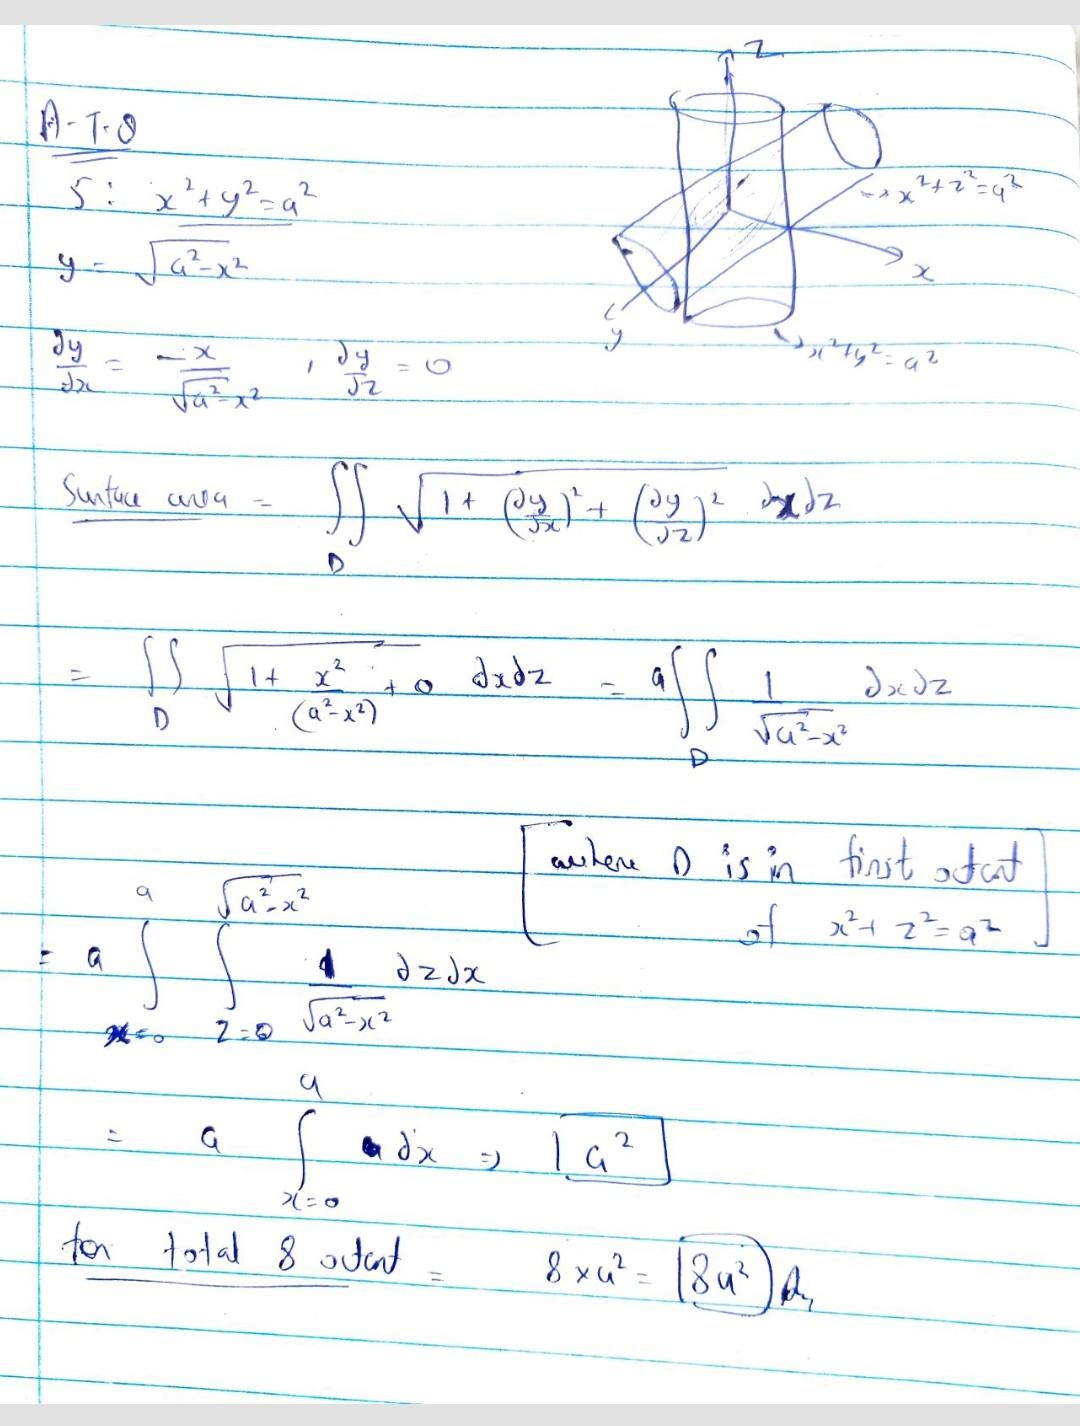 z
A-T-Q
S: x²+y²=a²
→ x²+z²=a²
y = √(a²-x²)
x
y
∂y/∂x = -x/√(a²-x²) , ∂y/∂z = 0
→ x²+y²=a²
Surface area = ∬_D √(1+(∂y/∂x)²+(∂y/∂z)²) dxdz
= ∬_D √(1+x²/(a²-x²)+0) dxdz = a∬_D 1/√(a²-x²) dxdz
[where D is in first octant
of x²+z²=a²]
= a ∫_{x=0}^{a} ∫_{z=0}^{√(a²-x²)} 1/√(a²-x²) dzdx
= a ∫_{x=0}^{a} dx ⇒ a²
for total 8 octant = 8×a² = 8a²